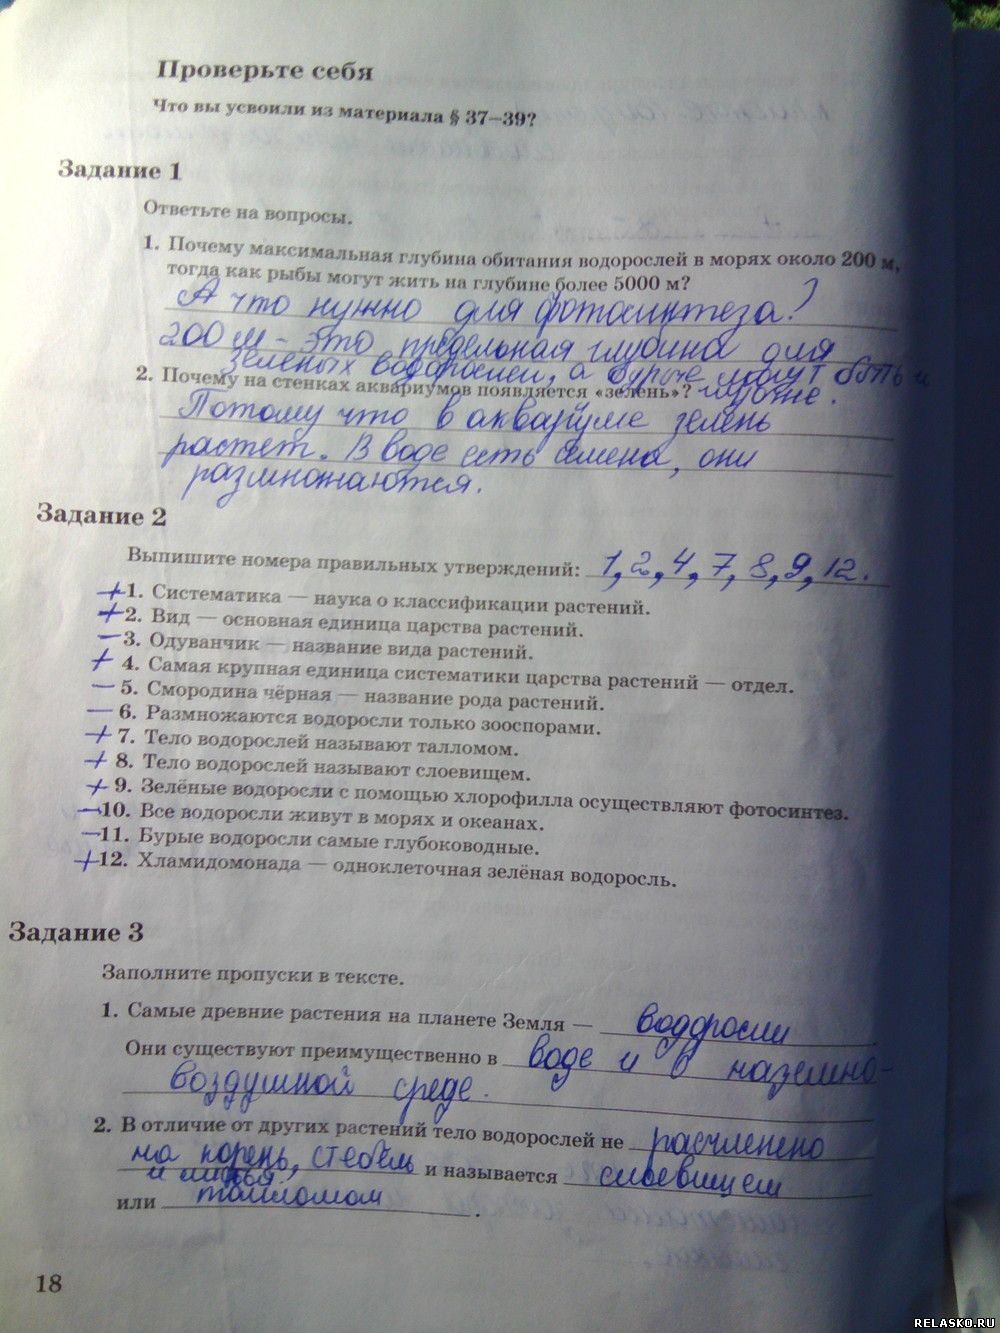 Проверьте себя
Что вы усвоили из материала § 37–39?
Задание 1
Ответьте на вопросы.
1. Почему максимальная глубина обитания водорослей в морях около 200 м,
тогда как рыбы могут жить на глубине более 5000 м?
А что нужно для фотосинтеза?
200 м - это предельная глубина для
зеленых водорослей, а бурые могут быть и
2. Почему на стенках аквариумов появляется «зелень»? глубже.
Потому что в аквариуме зелень
растет. В воде есть семена, они
размножаются.
Задание 2
Выпишите номера правильных утверждений: 1,2,4,7,8,9,12.
+1. Систематика — наука о классификации растений.
+2. Вид — основная единица царства растений.
—3. Одуванчик — название вида растений.
+ 4. Самая крупная единица систематики царства растений — отдел.
— 5. Смородина чёрная — название рода растений.
— 6. Размножаются водоросли только зооспорами.
+ 7. Тело водорослей называют талломом.
+ 8. Тело водорослей называют слоевищем.
+ 9. Зелёные водоросли с помощью хлорофилла осуществляют фотосинтез.
—10. Все водоросли живут в морях и океанах.
—11. Бурые водоросли самые глубоководные.
+12. Хламидомонада — одноклеточная зелёная водоросль.
Задание 3
Заполните пропуски в тексте.
1. Самые древние растения на планете Земля — водоросли
Они существуют преимущественно в воде и в наземно-
воздушной среде.
2. В отличие от других растений тело водорослей не расчленено
на корень, стебель и называется слоевищем
и листья.
или талломом.
18
RELASKO.RU